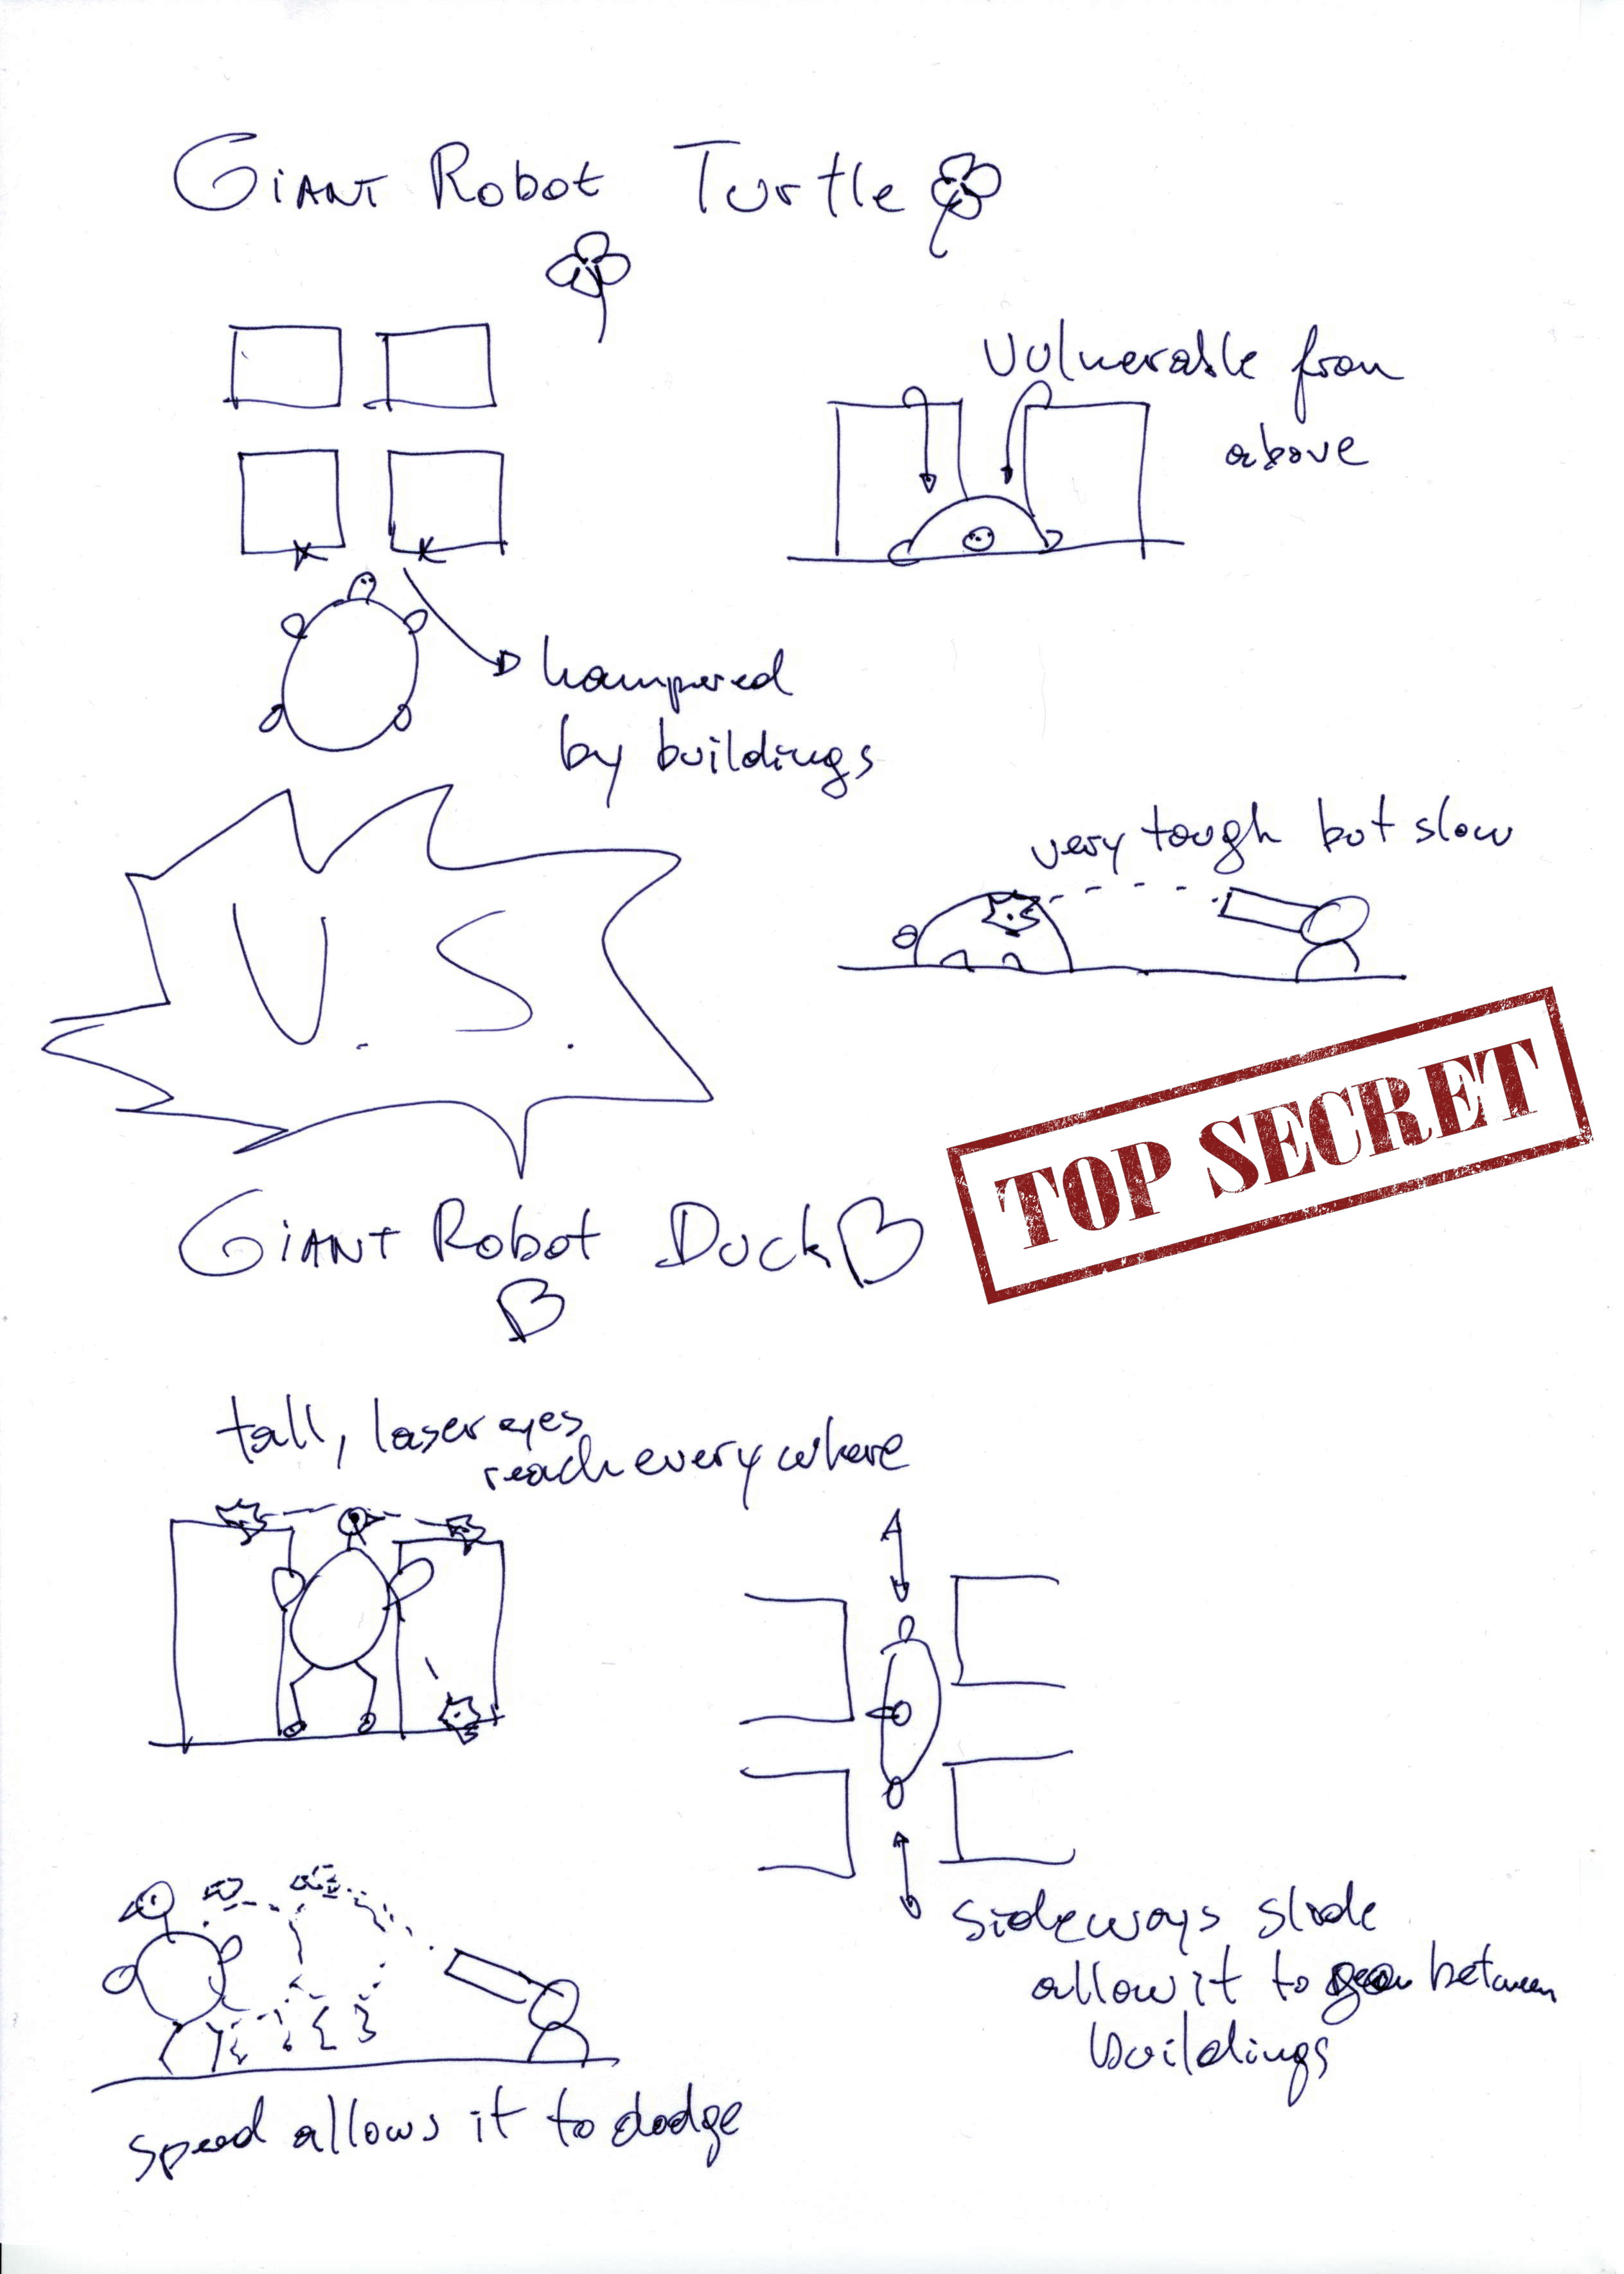 GIANT ROBOT Turtle
Vulnerable from
above
hampered
by buildings
very tough but slow
V.S.
TOP SECRET
GIANT ROBOT Duck
tall, laser eyes
reach everywhere
sideways slide
allow it to go between
buildings
speed allows it to dodge